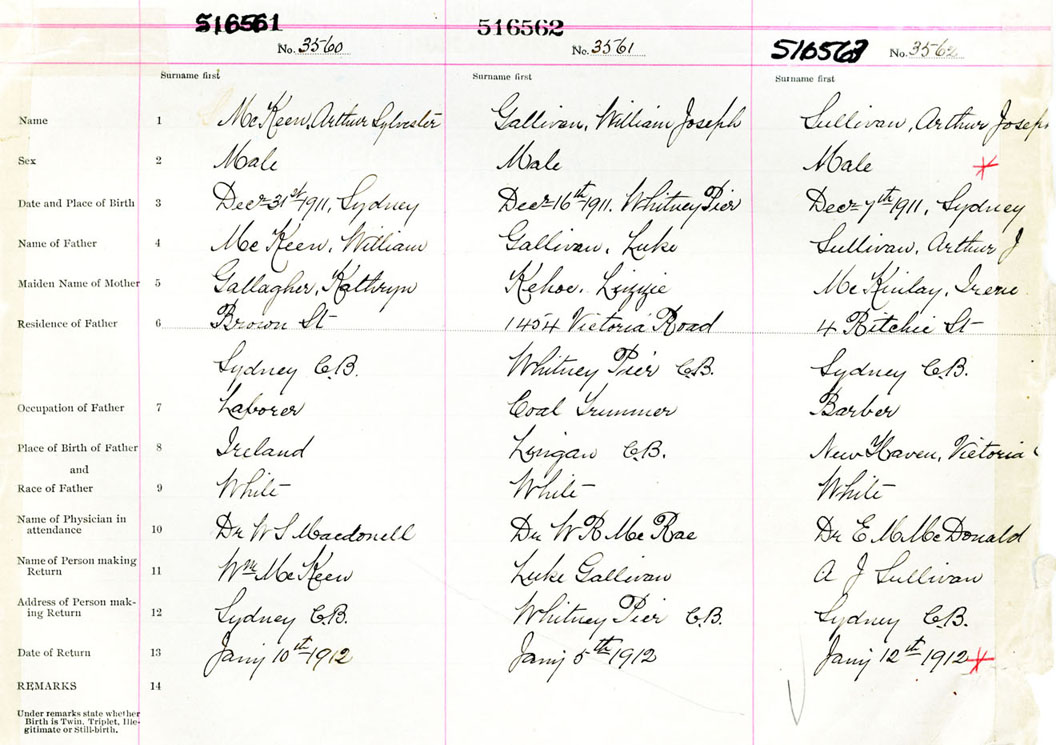 516561 516562 516563
No. 3560 No. 3561 No. 3562
Surname first Surname first Surname first
Name 1 McKeen, Arthur Sylvester Gallivan, William Joseph Sullivan, Arthur Joseph
Sex 2 Male Male Male
Date and Place of Birth 3 Decr 31st 1911, Sydney Decr 16th 1911. Whitney Pier Decr 7th 1911, Sydney
Name of Father 4 McKeen, William Gallivan, Luke Sullivan, Arthur J
Maiden Name of Mother 5 Gallagher, Kathryn Kehoe. Lizzie McKinlay, Irene
Residence of Father 6 Brown St 1454 Victoria Road 4 Ritchie St
Sydney C.B. Whitney Pier C.B. Sydney C.B.
Occupation of Father 7 Laborer Coal Trimmer Barber
Place of Birth of Father 8 Ireland Lingan C.B. New Haven, Victoria
and
Race of Father 9 White White White
Name of Physician in
attendance 10 Dr W S Macdonell Dr W R McRae Dr E M McDonald
Name of Person making
Return 11 Wm McKeen Luke Gallivan A J Sullivan
Address of Person mak-
ing Return 12 Sydney C.B. Whitney Pier C.B. Sydney C.B.
Date of Return 13 Jany 10th 1912 Jany 5th 1912 Jany 12th 1912
REMARKS 14
Under remarks state whether
Birth is Twin, Triplet, Ille-
gitimate or Still-birth.